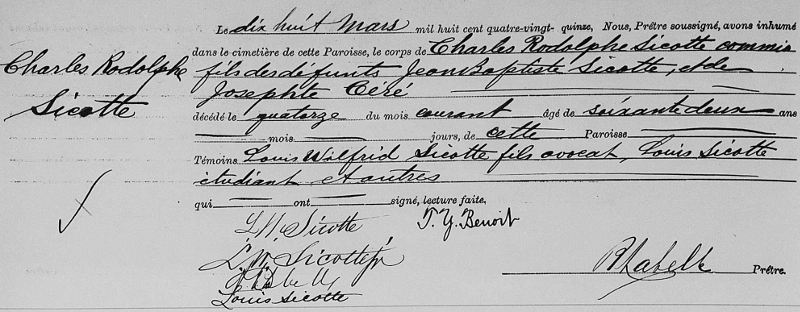 Le dix huit Mars mil huit cent quatre-vingt-quinze, Nous, Prêtre soussigné, avons inhumé
dans le cimetière de cette Paroisse, le corps de Charles Rodolphe Sicotte commis
Charles Rodolphe
Sicotte
fils des défunts Jean Baptiste Sicotte, et de
Josephte Ceré
décédé le quatorze du mois courant âgé de soixante deux ans
mois jours, de cette Paroisse
Témoins Louis Wilfrid Sicotte fils avocat, Louis Sicotte
étudiant et autres
qui ont signé, lecture faite.
L W Sicotte T. Y. Benoit
L. W. Sicotte jr
Labelle Prêtre.
Louis Sicotte